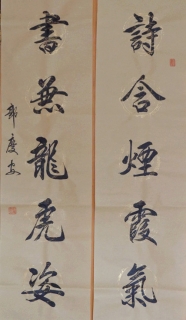 詩含煙霞氣
書兼龍虎姿